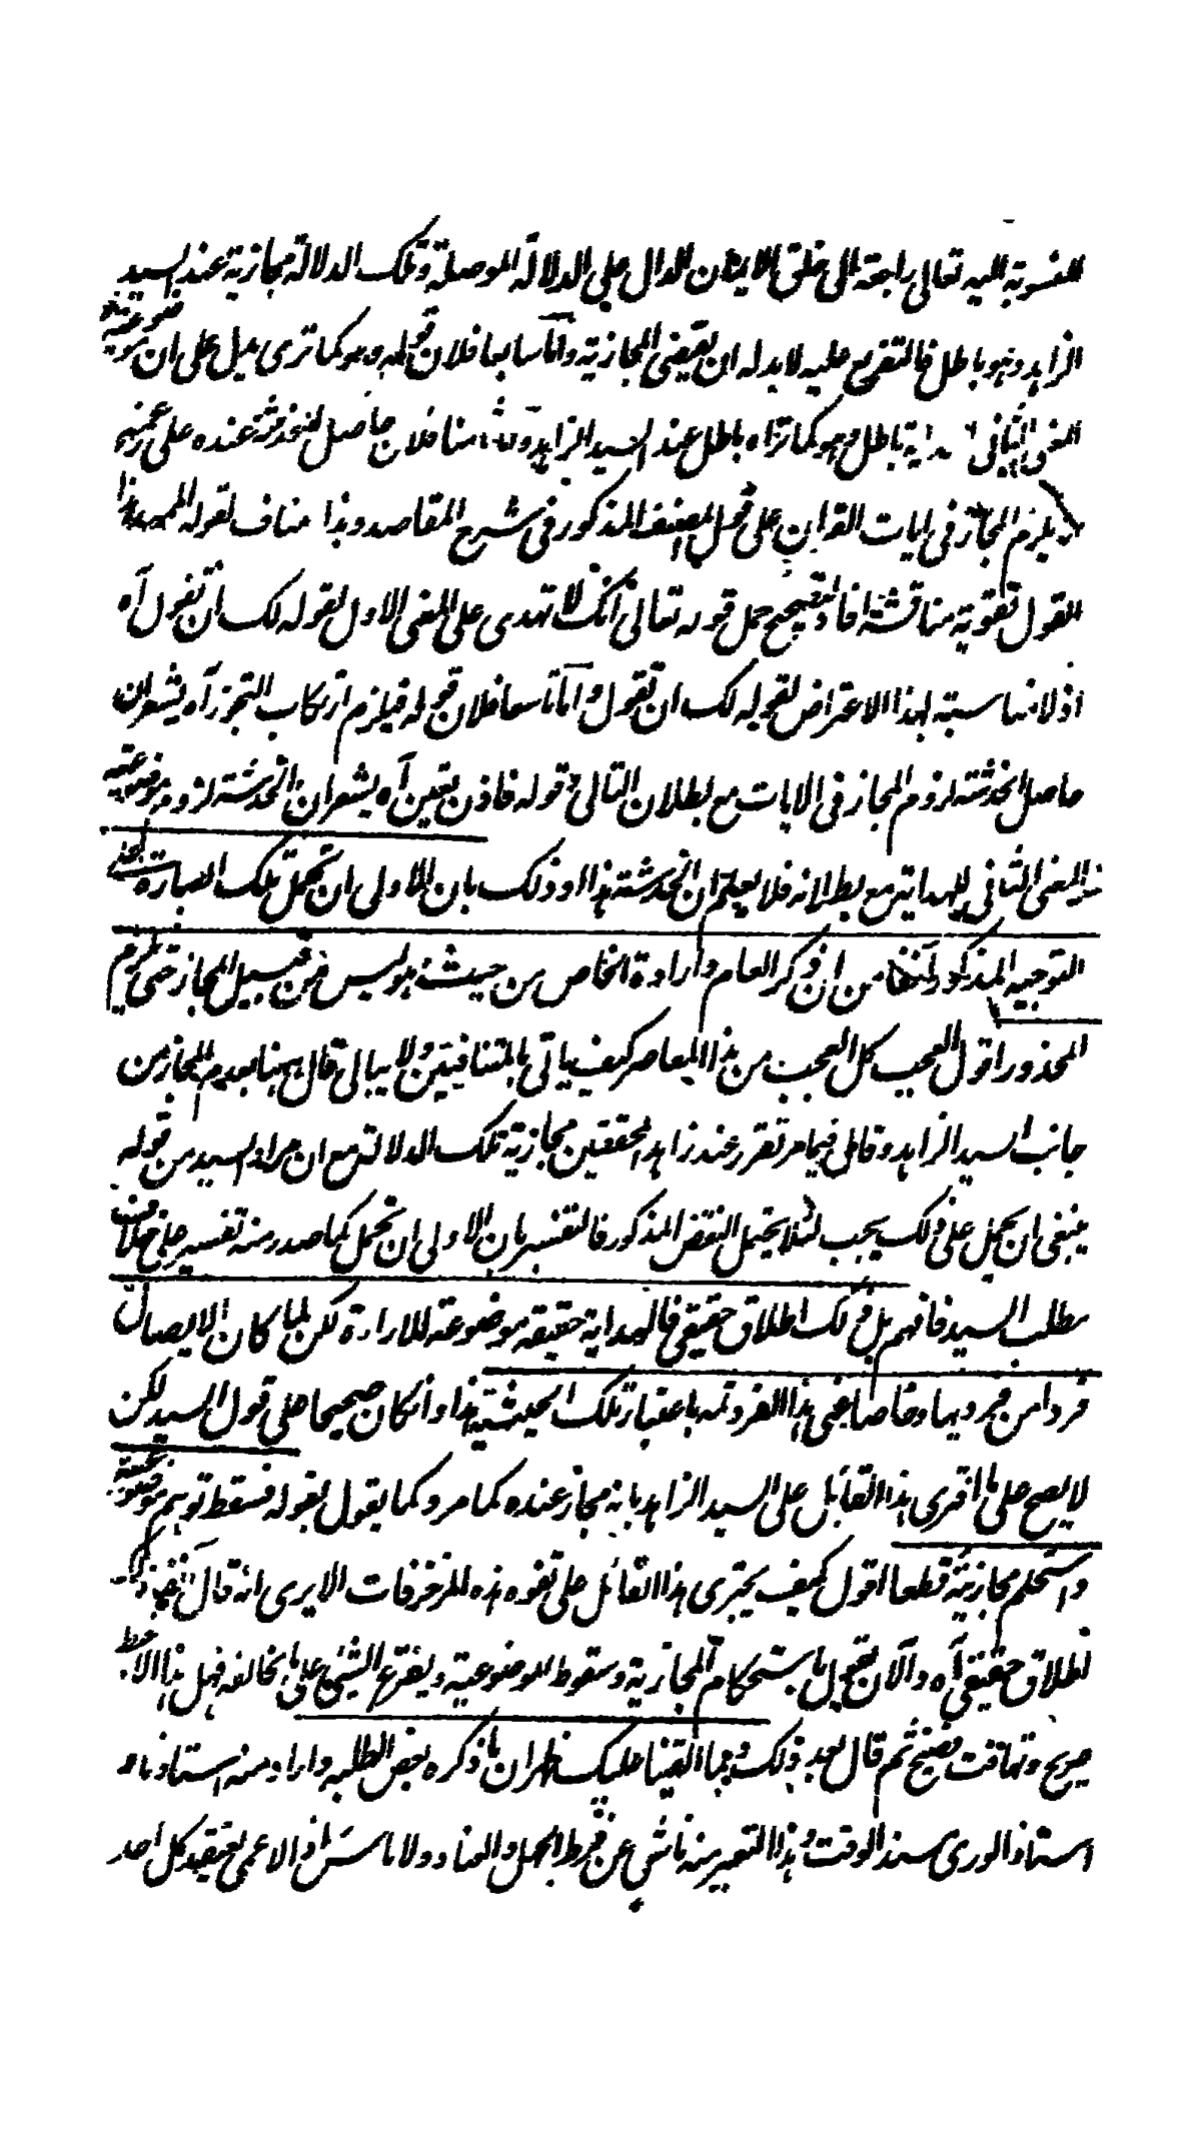 المنسوبة اليه تعالى راجعة الى خلق الايمان الدال على الدلالة الموصلة وتلك الدلالة مجازية عند السيد
الزاهد وهو باطل فالتفريع عليه لابد له ان يقتضى المجازية واما سابعا فلان قوله وهو كما ترى يدل على ان موضوعية
المعنى الثانى باطل وهو كما تراه باطل عند السيد الزاهد وثامنا فلان حاصل الخدشة عنده على زعمه
يلزم المجاز فى ايات القران على محمل المصنف المذكور فى شرح المقاصد وهذا مناف لقوله
القول تقوية مناقشة افاد بتصحيح حمل قوله تعالى انك لا تهدى على المعنى الاول لقوله لك ان تقول آه
اذ لا مناسبة لهذا الاعتراض لقوله لك ان تقول واما تاسعا فلان قوله فيلزم ارتكاب التجوز آه يشعر ان
حاصل الخدشة لزوم المجاز فى الايات مع بطلان التالى وقوله فاذن يتعين آه يشعر ان الخدشة لزوم موضوعية
المعنى الثانى للهداية مع بطلانه فلا يعلم ان الخدشة هذا او ذلك بان الاولى ان تحمل تلك العبارة على
التوجيه المذكور آنفا من ان ذكر العام وارادة الخاص من حيث هو ليس من قبيل المجاز حتى يلزم
المحذور اقول العجب كل العجب من هذا المعاصر كيف ياتى بالمتنافيين ولا يبالى قال ههنا بعدم المجاز من
جانب السيد الزاهد وقال فيما مر تقرر عند زاهد المحققين مجازية تلك الدلالة مع ان مراد السيد من قوله
ينبغى ان يحمل على ذلك يجب لئلا يحتمل النقض المذكور فالتفسير بان الاولى ان تحمل كما صدر منه تفسير على خلاف
مطلب السيد فافهم بل ذلك اطلاق حقيقى فالهداية حقيقة موضوعة للاراءة لكن لما كان الايصال
فردا من فرديها وخاصا عنى هذا الفرد منه باعتبار تلك الحيثية هذا وان كان صحيحا على قول السيد لكن
لا يصح على ما افترى هذا القائل على السيد الزاهد بانه مجاز عنده كما مر وكما يقول بقوله فسقط توهم موضوعيته
واستحكم مجازيته قطعا اقول كيف يجترى هذا القائل على تفوه هذه المزخرفات الا يرى انه قال
اطلاق حقيقى آه والآن تقول باستحكام المجازية وسقوط الموضوعية ويفرع الشئ على ما يخالفه فهل هذا الا خبط
صريح وتهافت فضيح ثم قال بعد ذلك وبما القينا عليك ظهر ان ما ذكره بعض الطلبه واراد منه استاذنا و
استاذ الورى سند الوقت وهذا التعبير منه ناشى عن فرط الجهل والعناد ولا باس اذ الاعمى يعتقد كل احد